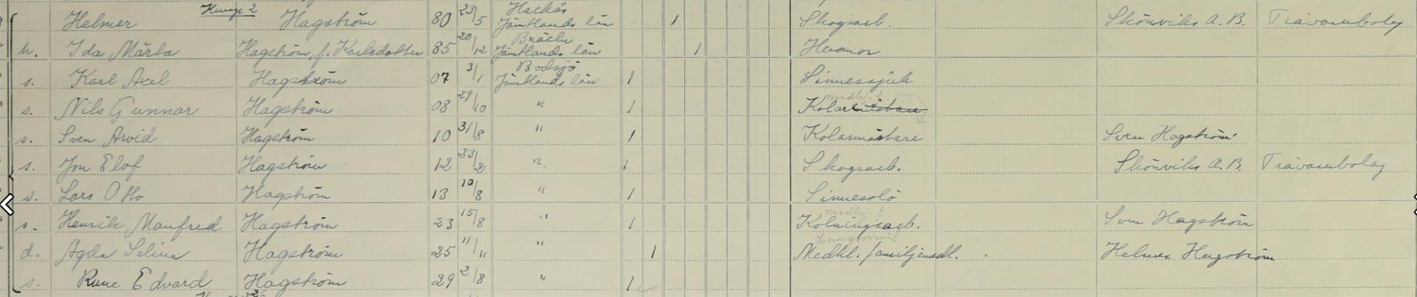 Helmer Hagström 80 23/5 Hackås Jämtlands län 1 Skogsarb. Skönviks A.B. Trävarubolag
h. Ida Märta Hagström, f. Karlsdotter 85 20/12 Bräcke Jämtlands län 1 Husmor
s. Karl Axel Hagström 07 3/1 Bodsjö Jämtlands län 1 Sinnessjuk
s. Nils Gunnar Hagström 08 29/10 " 1
s. Sven Arvid Hagström 10 31/8 " 1 Kolarmästare Sven Hagström
s. Jon Elof Hagström 12 23/2 " 1 Skogsarb. Skönviks A.B. Trävarubolag
s. Lars Otto Hagström 13 10/8 " 1 Sinnesslö
s. Henrik Manfred Hagström 23 15/8 " 1 Kolningsarb. Sven Hagström
d. Agda Selina Hagström 25 11/11 " 1 Medhl. familjemedl. Helmer Hagström
s. Rune Edvard Hagström 29 2/8 " 1